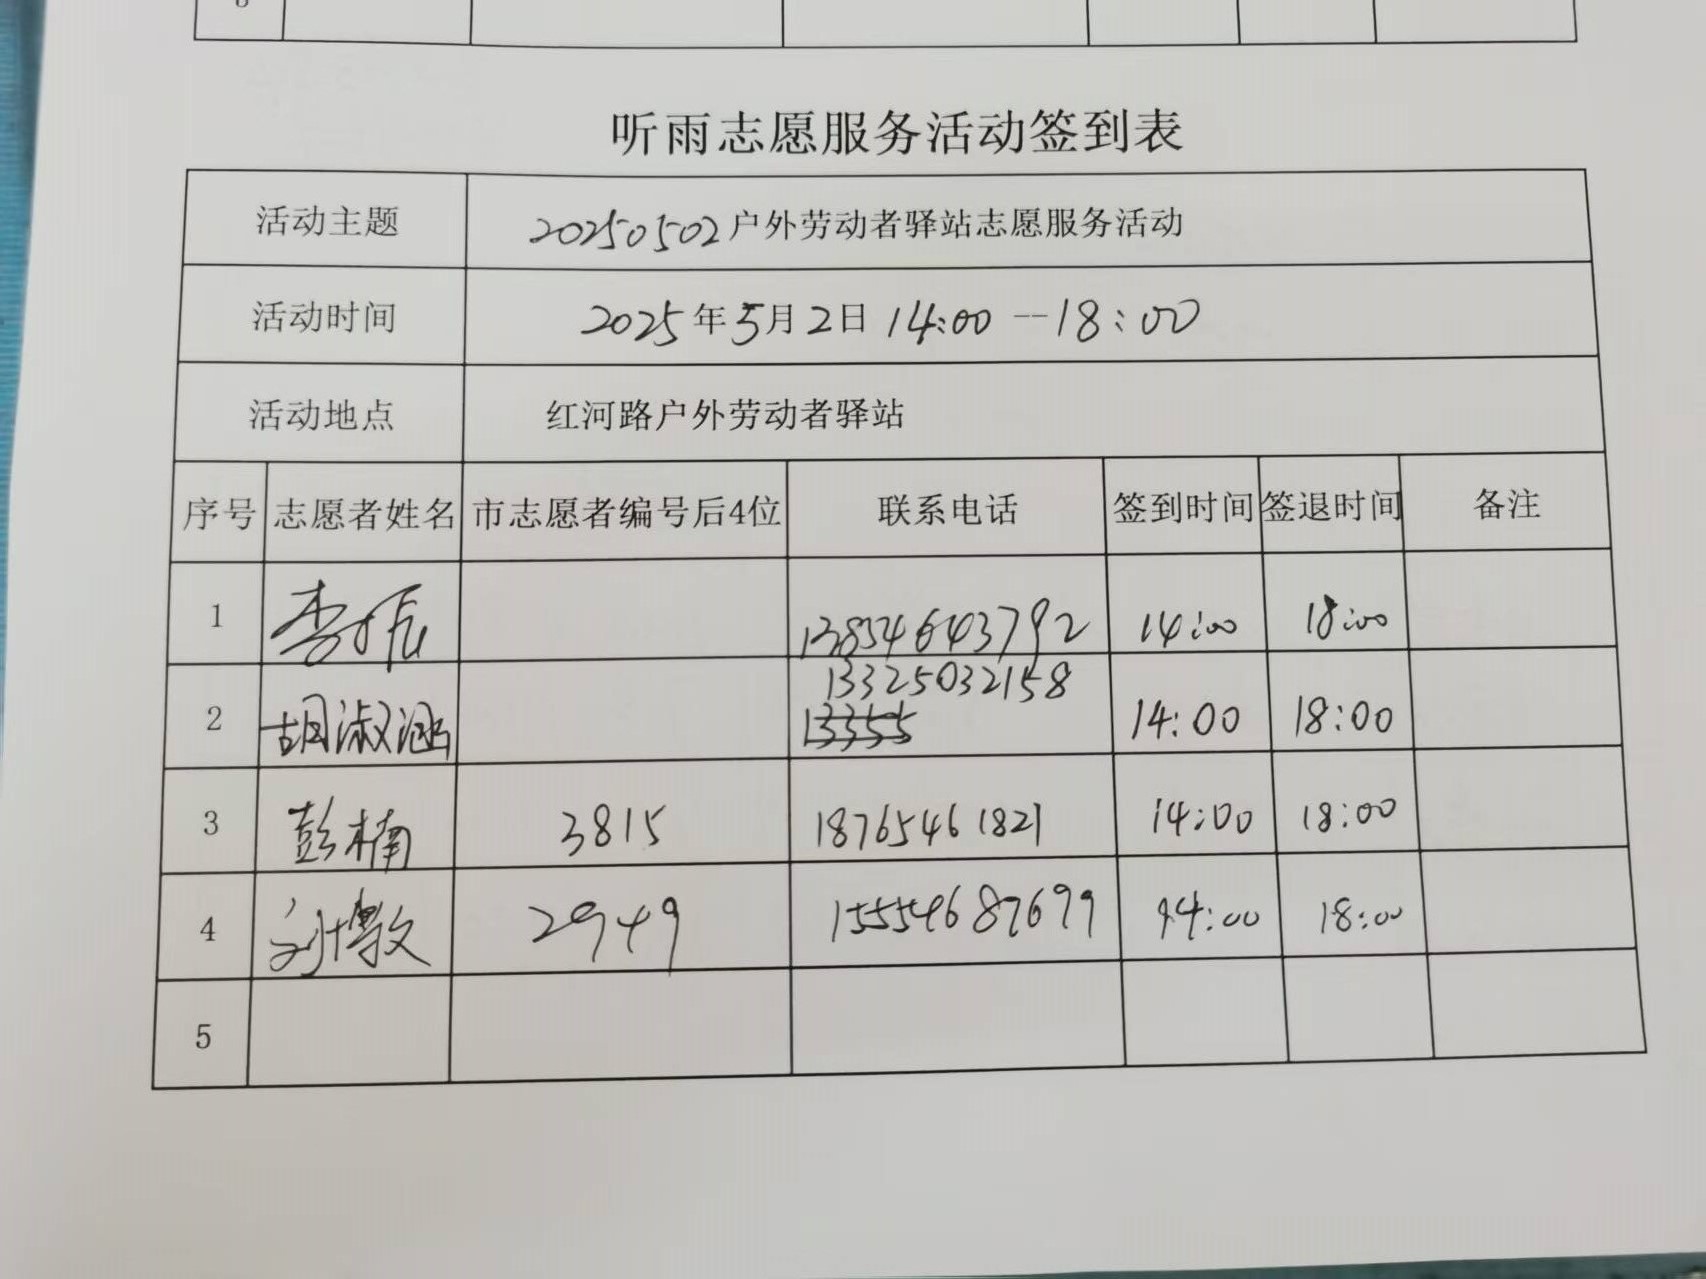 听雨志愿服务活动签到表
活动主题 20250502户外劳动者驿站志愿服务活动
活动时间 2025年5月2日 14:00--18:00
活动地点 红河路户外劳动者驿站
序号 志愿者姓名 市志愿者编号后4位 联系电话 签到时间 签退时间 备注
1 李振 13854643792 14:00 18:00
13325032158
2 胡淑涵 13355 14:00 18:00
3 彭楠 3815 18765461821 14:00 18:00
4 刘博敏 2949 15554687679 14:00 18:00
5